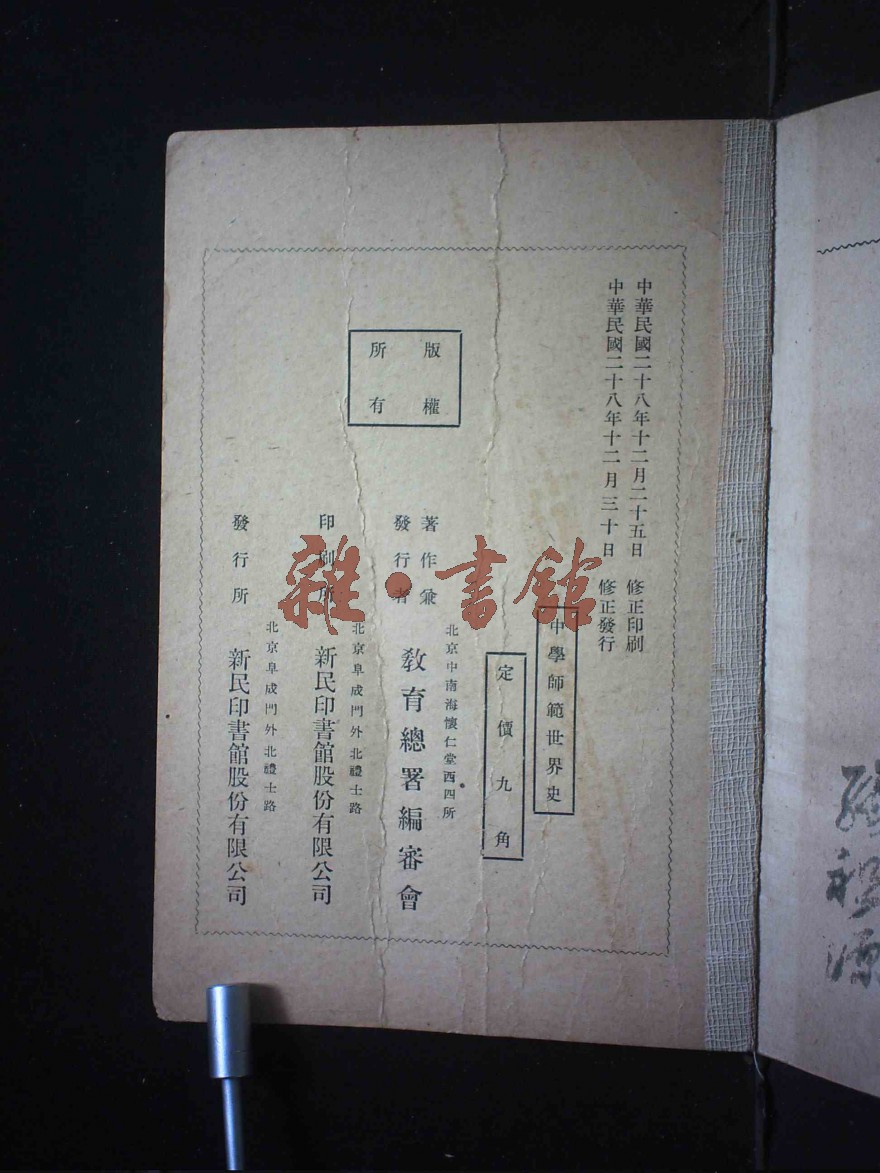 中華民國二十八年十二月二十五日 修正印刷
中華民國二十八年十二月三十日 修正發行
中學師範世界史
定價九角
版權
所有
北京中南海懷仁堂西四所
著作兼
發行者 教育總署編審會
北京阜成門外北禮士路
印刷所 新民印書館股份有限公司
北京阜成門外北禮士路
發行所 新民印書館股份有限公司
雜·書館